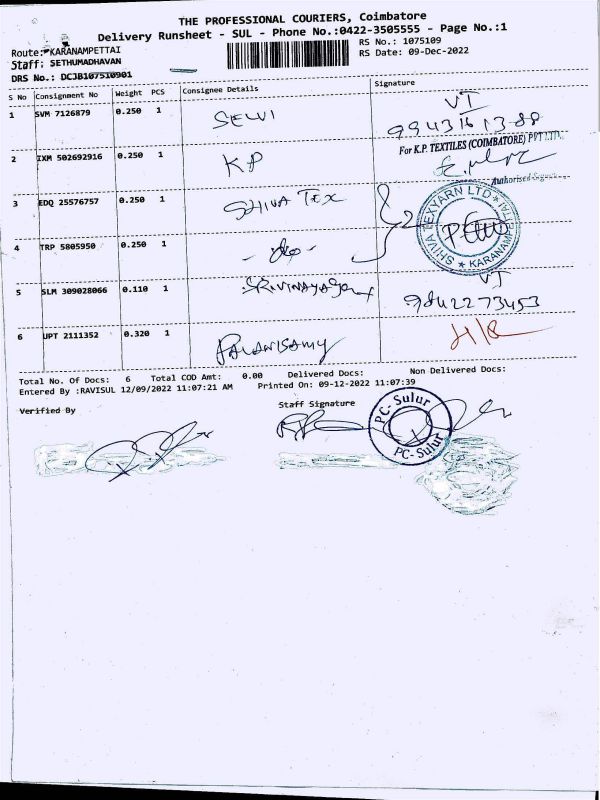 THE PROFESSIONAL COURIERS, Coimbatore
Delivery Runsheet - SUL - Phone No.:0422-3505555 - Page No.:1
Route: KARANAMPETTAI
RS No.: 1075109
Staff: SETHUMADHAVAN
RS Date: 09-Dec-2022
DRS No.: DCJB107510901
S No Consignment No Weight PCS Consignee Details Signature
1 SVM 7126879 0.250 1 SELVI VT
99431613 88
2 IXM 502692916 0.250 1 KP For K.P. TEXTILES (COIMBATORE) PVT LTD.
Authorised
3 EDQ 25576757 0.250 1 SHIVA TEX
SHIVA TEXYARN LTD * KARANAMPETTAI *
4 TRP 5805950 0.250 1 - do -
5 SLM 309028066 0.110 1 VT
9842273453
6 UPT 2111352 0.320 1 PALANISAMY
Total No. Of Docs: 6 Total COD Amt: 0.00 Delivered Docs: Non Delivered Docs:
Entered By :RAVISUL 12/09/2022 11:07:21 AM Printed On: 09-12-2022 11:07:39
Verified By
Staff Signature
PC-Sulur
PC-Sulur